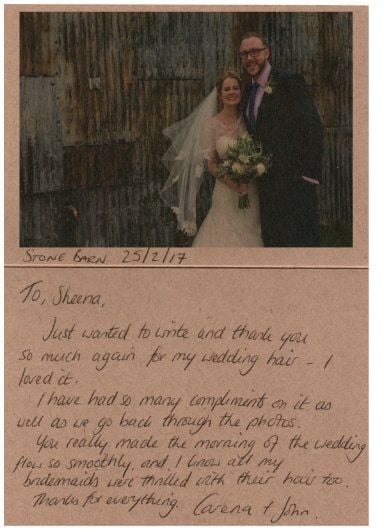 STONE BARN 25/2/17
To, Sheena,
Just wanted to write and thank you
so much again for my wedding hair - I
loved it.
I have had so many compliments on it as
well as we go back through the photos.
You really made the morning of the wedding
flow so smoothly, and I know all my
bridesmaids were thrilled with their hair too.
Thanks for everything. Carena + John.